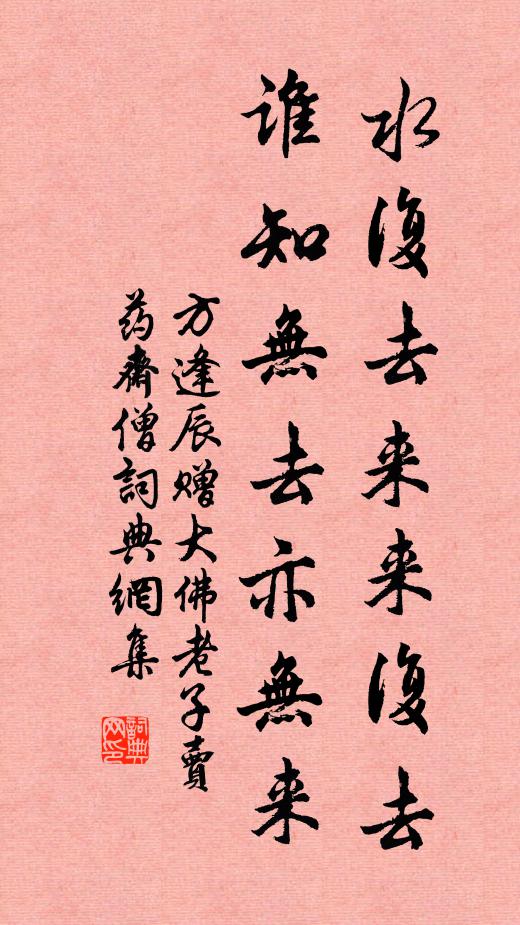 水復去来来復去
誰知無去亦無来
方逢辰赠大佛老子賣
药齋僧詞典網集
詞典
网印